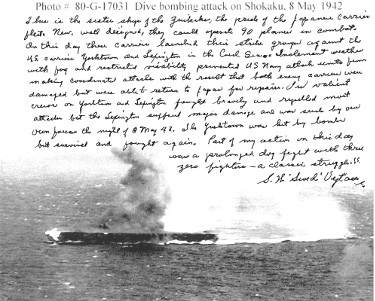 Photo # 80-G-17031 Dive bombing attack on Shokaku, 8 May 1942
is the sister ship of the Zuikaku, the pride of the Japanese Carrier
fleet. New, well designed, they could operate 90 planes in combat.
On this day three carriers launched their strike groups against the
US carriers Yorktown and Lexington in the Coral Sea. Inclement weather
with fog and restricted visibility prevented US Navy attack units from
making coordinated attacks with the result that both enemy carriers were
damaged but were able to return to Japan for repairs. Our valiant
crews on Yorktown and Lexington fought bravely and repelled most
attacks but the Lexington suffered major damage and was sunk by our
own forces the night of 8 May 42. The Yorktown was hit by bomb
but survived and fought again. Part of my action on this day
was a prolonged dog fight with three
zero fighters - a classic struggle.
S.W. "Swede" Vejtasa